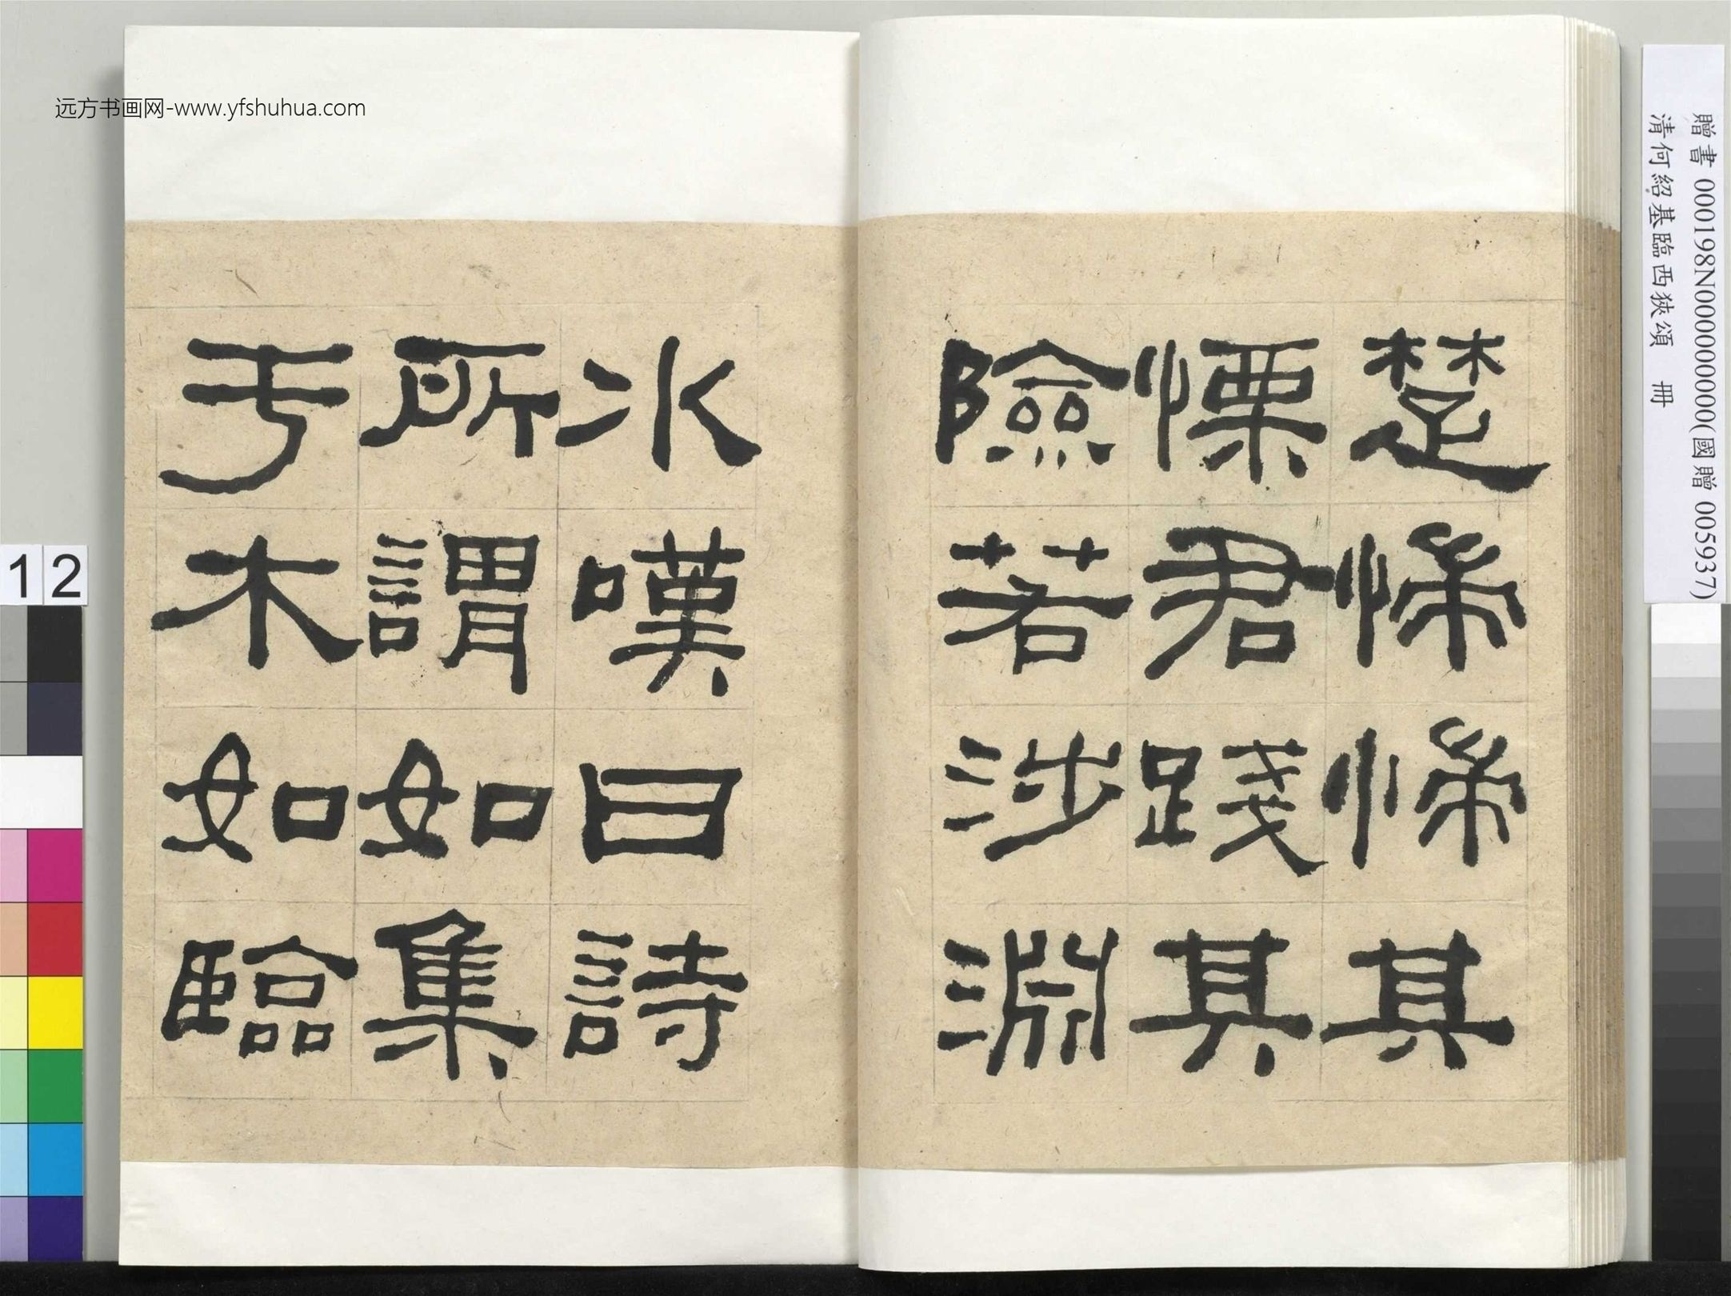 远方书画网-www.yfshuhua.com
贈書 000198N000000000(國贈 005937)
清何紹基臨西狹頌 冊
楚惴惴其
慄君踐其
險若涉淵
冰嘆曰詩
所謂如集
于木如臨
12